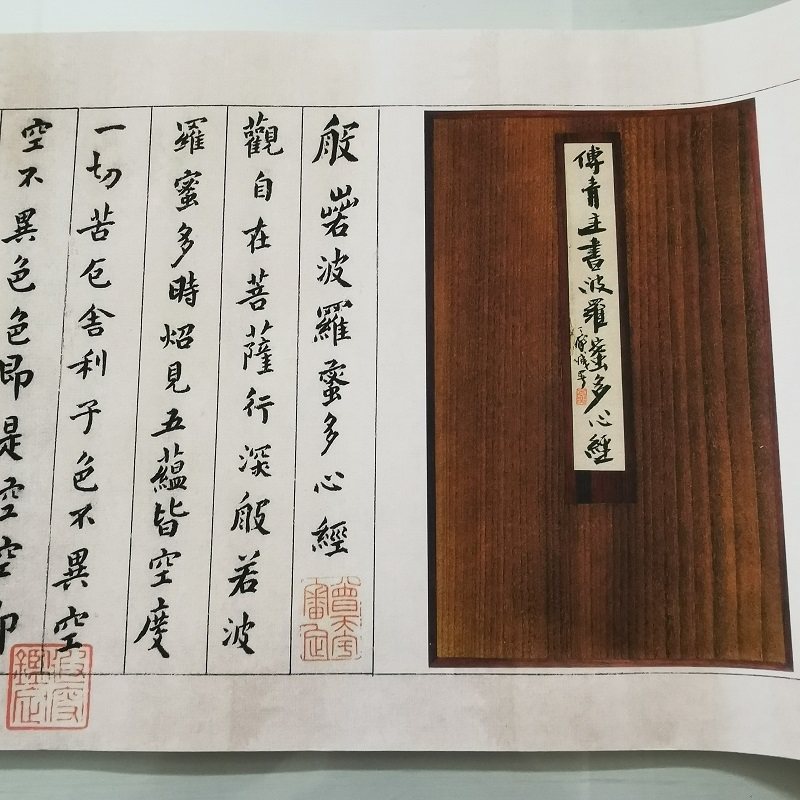 傅青主書波羅蜜多心經
般若波羅蜜多心經
觀自在菩薩行深般若波
羅蜜多時炤見五蘊皆空度
一切苦厄舍利子色不異空
空不異色色即是空空即